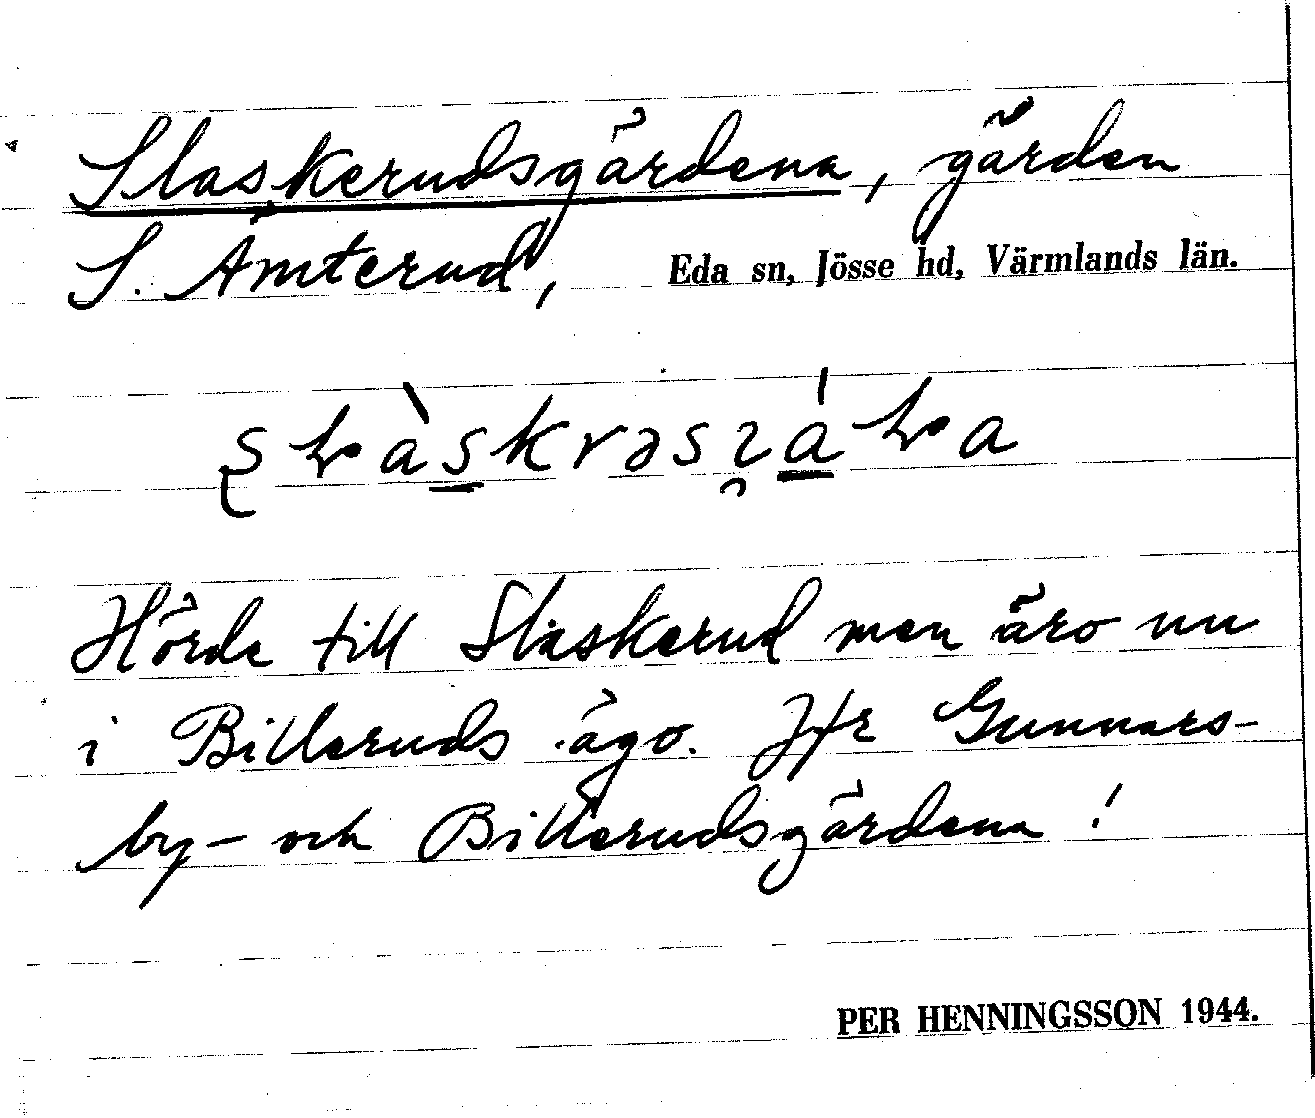 Slaskerudsgärdena, gärden
S. Ämterud, Eda sn, Jösse hd, Värmlands län.
Hörde till Slaskerud men äro nu
i Billeruds ägo. Jfr Gunnars-
by- och Billerudsgärdena !
PER HENNINGSSON 1944.